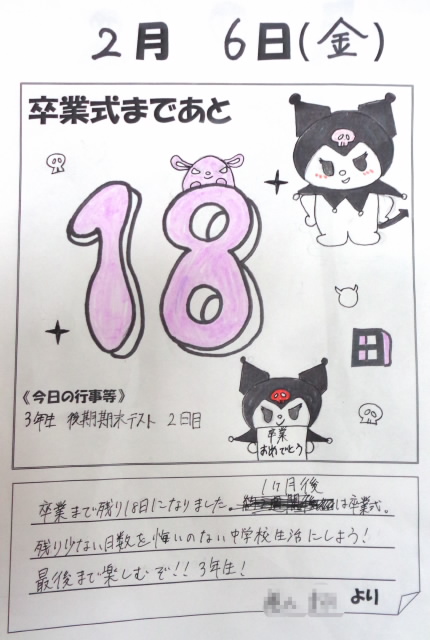 2月 6日(金)
卒業式まであと
18
日
《今日の行事等》
3年生 後期期末テスト 2日目
卒業
おめでとう
1ヶ月後
卒業まで残り18日になりました。は卒業式。
残り少ない日数を悔いのない中学校生活にしよう!
最後まで楽しむぞ!!3年生!
より